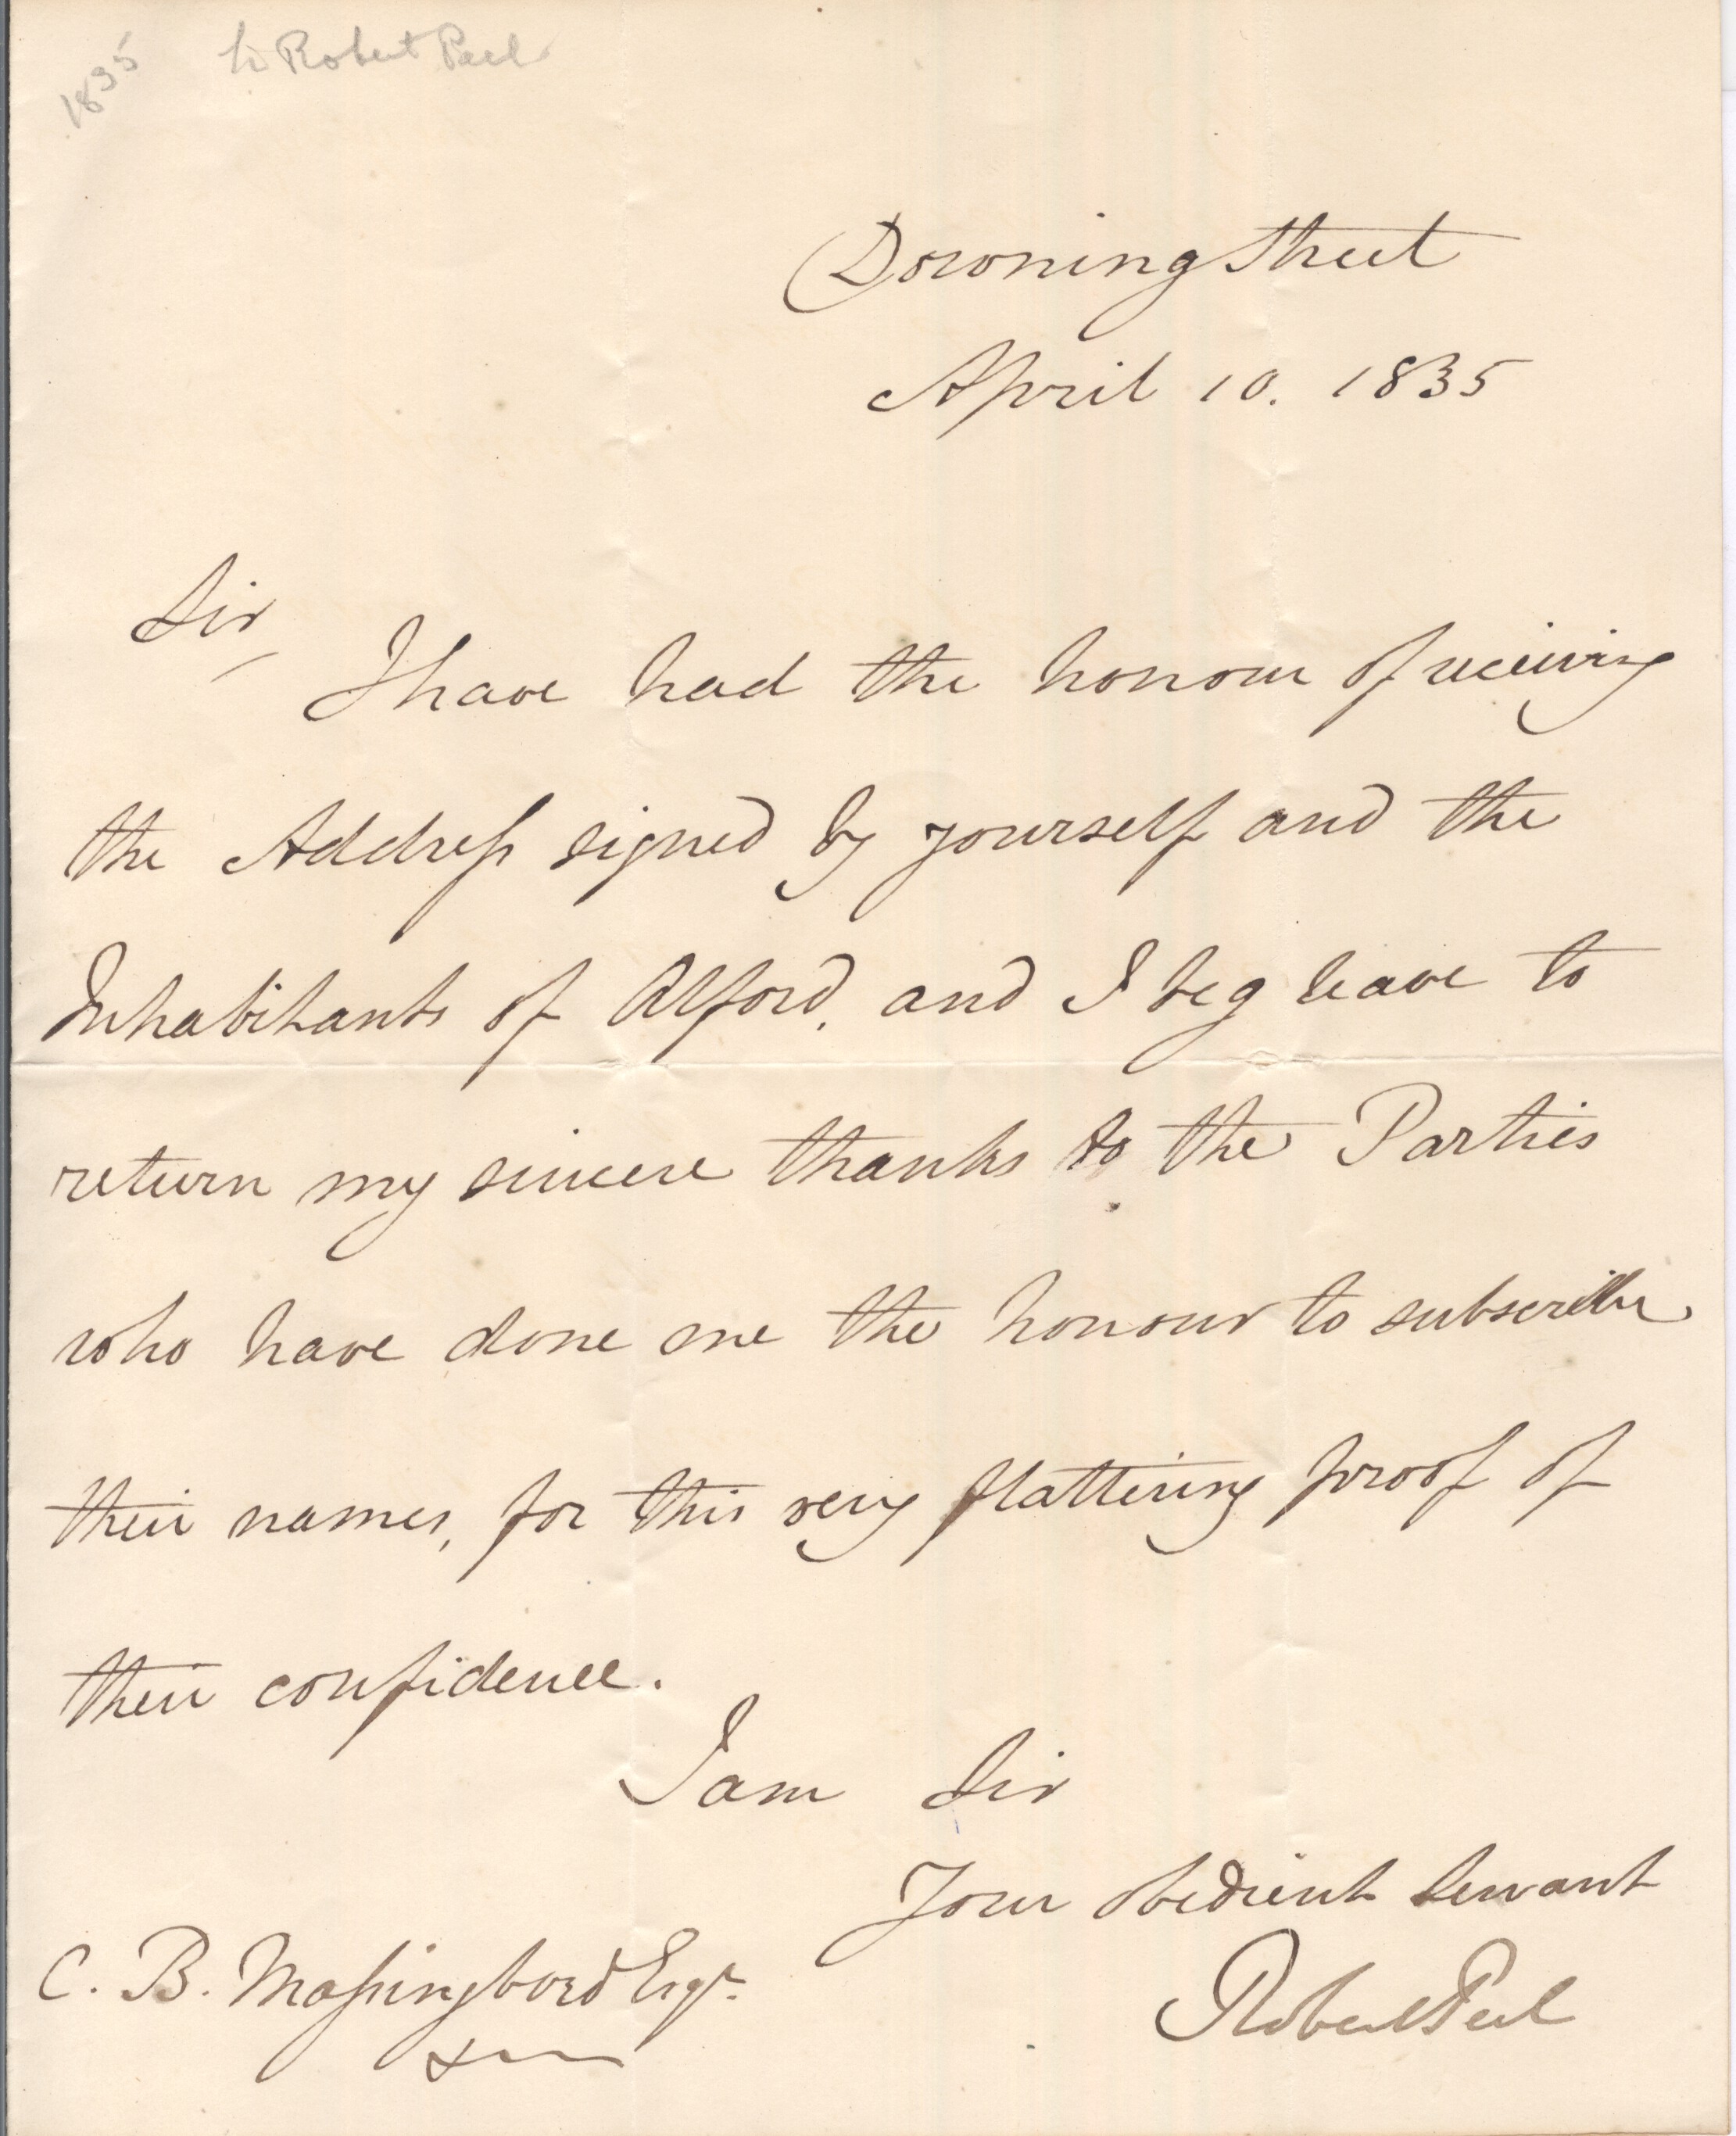 1835
Sir Robert Peel
Downing Street
April 10. 1835
Sir,
I have had the honour of receiving
the Addreſs signed by yourself and the
Inhabitants of Alford, and I beg leave to
return my sincere thanks to the Parties
who have done me the honour to subscribe
their names, for this very flattering proof of
their confidence.
I am Sir
Your obedient Servant
C. B. Maſsingberd Esqr.
Robert Peel